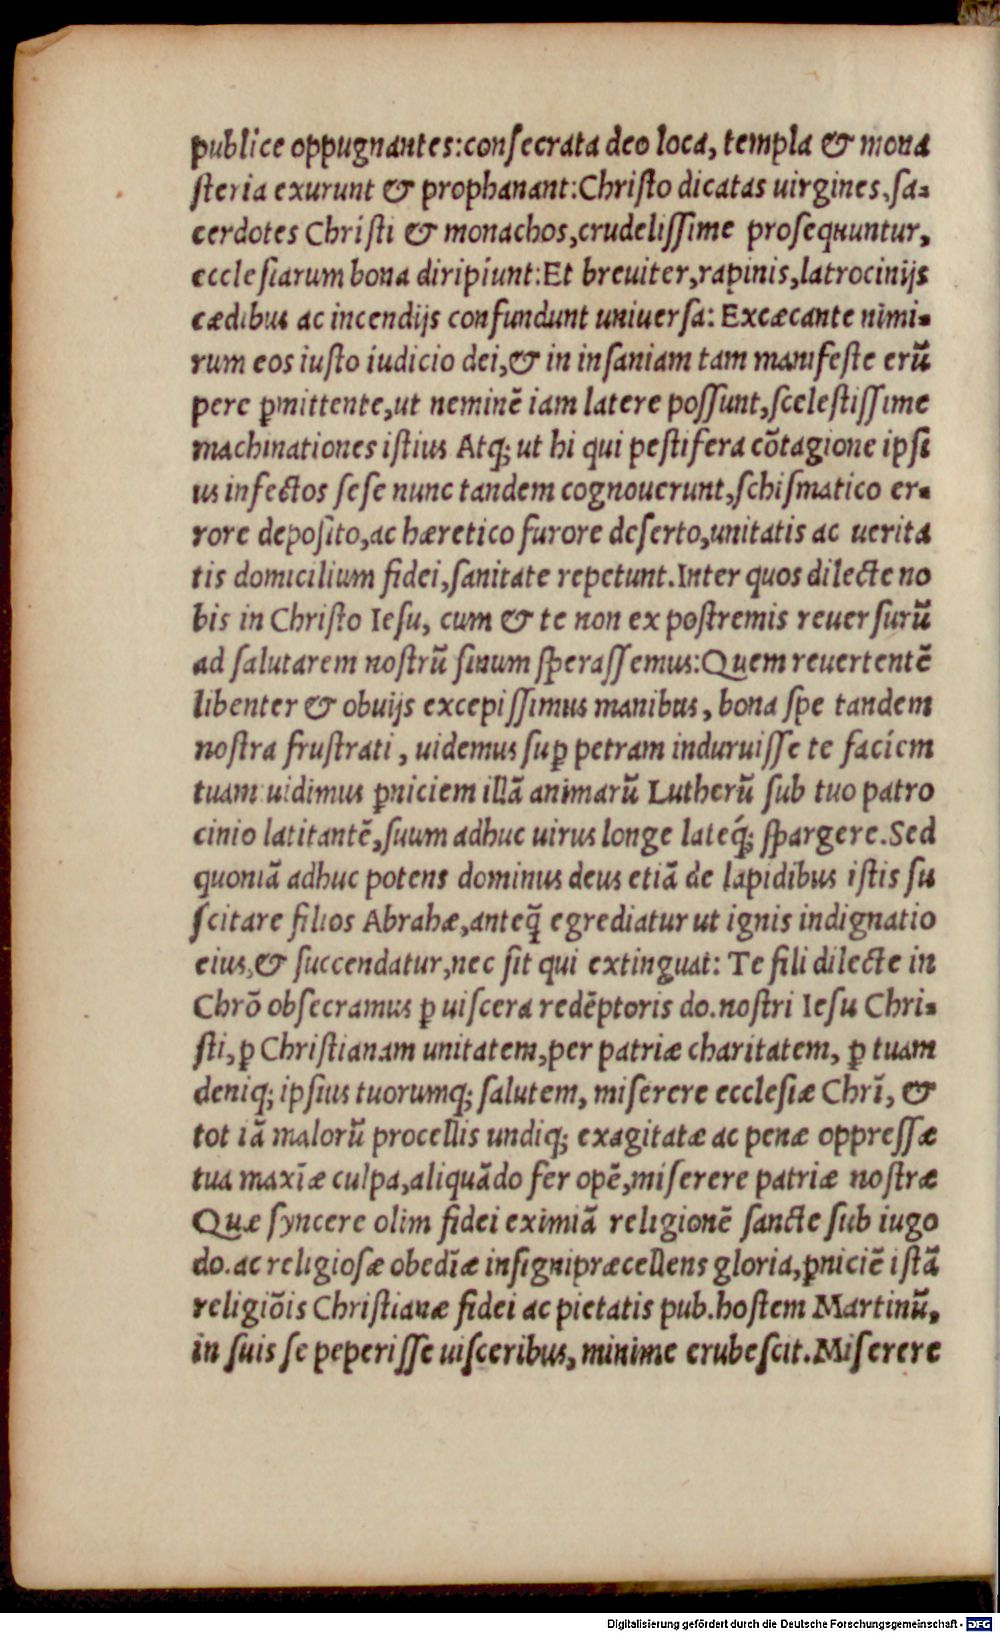 publice oppugnantes:consecrata deo loca, templa & mona
steria exurunt & prophanant:Christo dicatas uirgines,sa=
cerdotes Christi & monachos,crudelissime prosequuntur,
ecclesiarum bona diripiunt:Et breuiter,rapinis,latrocinijs
cædibus ac incendijs confundunt uniuersa: Excæcante nimi=
rum eos iusto iudicio dei,& in insaniam tam manifeste erū
pere ꝑmittente,ut neminē iam latere possunt,scelestissime
machinationes istius Atq; ut hi qui pestifera cōtagione ipsi
us infectos sese nunc tandem cognouerunt,schismatico er=
rore deposito,ac hæretico furore deserto,unitatis ac uerita
tis domicilium fidei,sanitate repetunt.Inter quos dilecte no
bis in Christo Iesu, cum & te non ex postremis reuersurū
ad salutarem nostrū sinum sperassemus:Quem reuertentē
libenter & obuijs excepissimus manibus, bona spe tandem
nostra frustrati, uidemus suꝑ petram induruisse te faciem
tuam uidimus ꝑniciem illā animarū Lutherū sub tuo patro
cinio latitantē,suum adhuc uirus longe lateq́; spargere.Sed
quoniā adhuc potens dominus deus etiā de lapidibus istis su
scitare filios Abrahæ,anteq̄ egrediatur ut ignis indignatio
eius,& succendatur,nec sit qui extinguat: Te fili dilecte in
Chrō obsecramus ꝑ uiscera redēptoris do.nostri Iesu Chri=
sti,ꝑ Christianam unitatem,per patriæ charitatem, ꝑ tuam
deniq; ipsius tuorumq; salutem, miserere ecclesiæ Chrī, &
tot iā malorū procellis undiq; exagitatæ ac penæ oppressæ
tua maxīæ culpa,aliquādo fer opē,miserere patriæ nostræ
Quæ syncere olim fidei eximiā religionē sancte sub iugo
do.ac religiosæ obedīæ insignipræcellens gloria,ꝑniciē istā
religiōis Christianæ fidei ac pietatis pub.hostem Martinū,
in suis se peperisse uisceribus,minime erubescit.Miserere
Digitalisierung gefördert durch die Deutsche Forschungsgemeinschaft - DFG